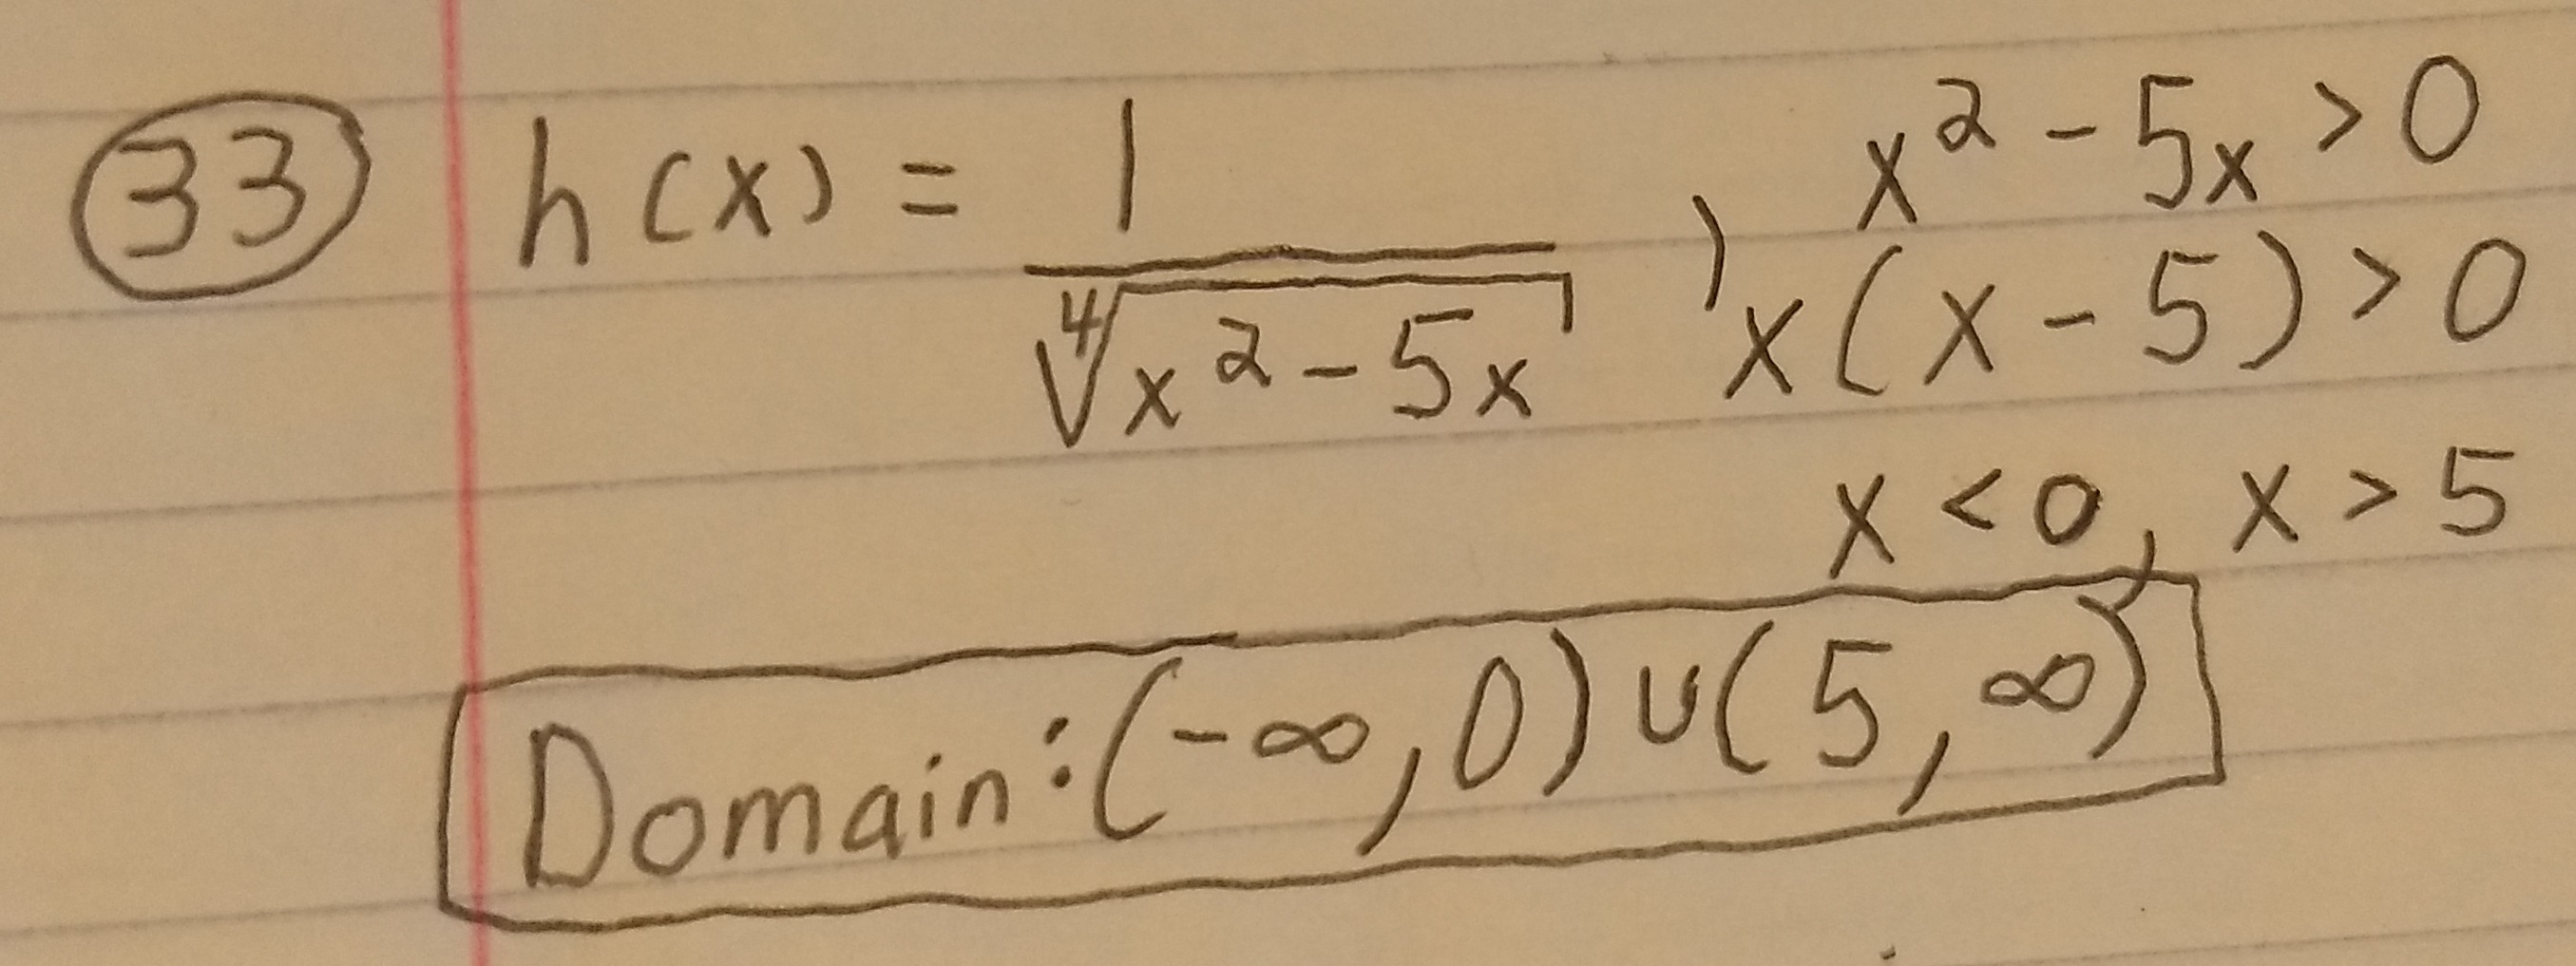 33 h(x) = 1/∜(x² - 5x) , x² - 5x > 0
x(x - 5) > 0
x < 0, x > 5
Domain: (-∞, 0) ∪ (5, ∞)